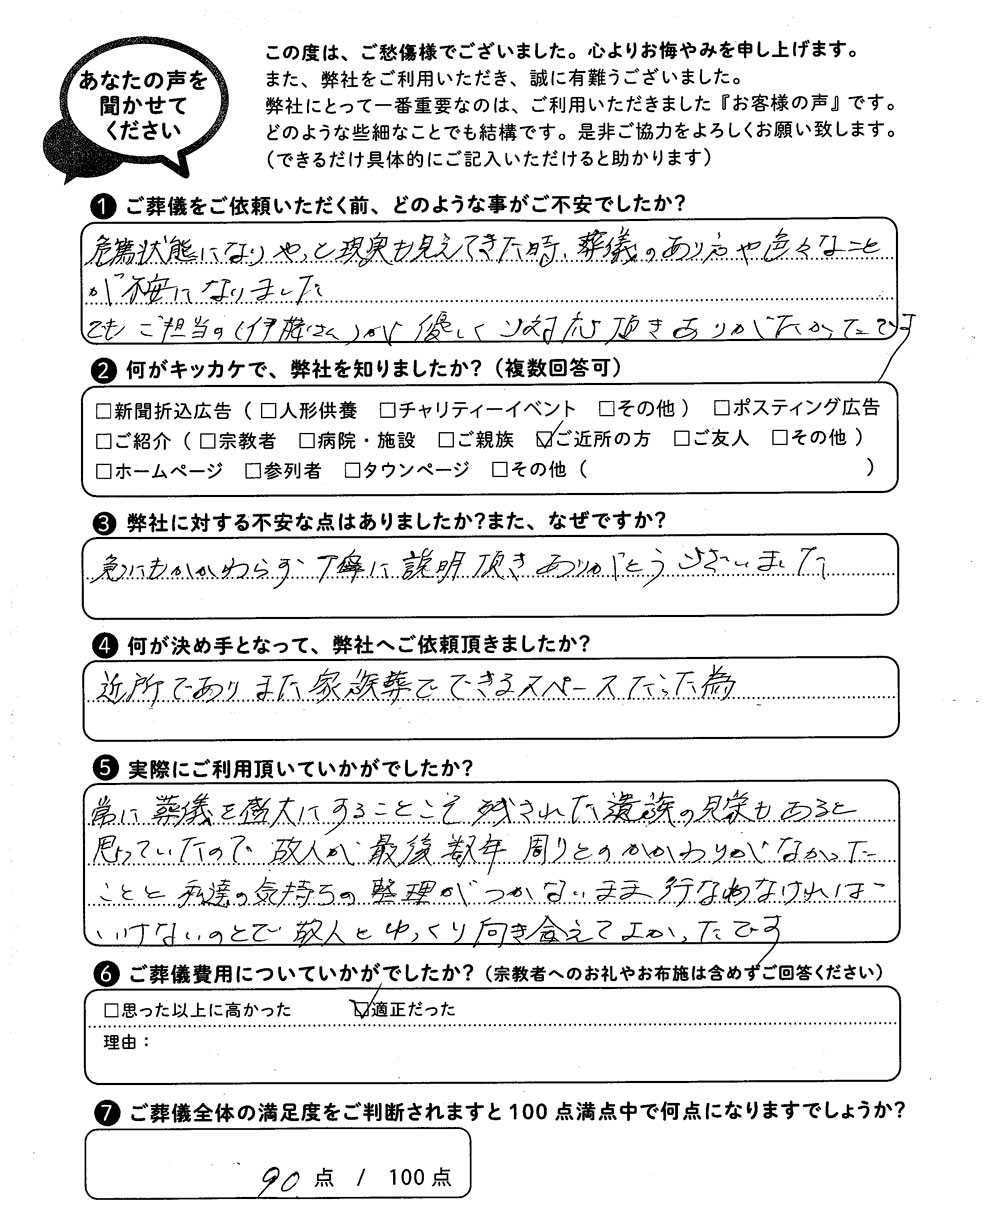 あなたの声を
聞かせて
ください
この度は、ご愁傷様でございました。心よりお悔やみを申し上げます。
また、弊社をご利用いただき、誠に有難うございました。
弊社にとって一番重要なのは、ご利用いただきました『お客様の声』です。
どのような些細なことでも結構です。是非ご協力をよろしくお願い致します。
（できるだけ具体的にご記入いただけると助かります）
❶ ご葬儀をご依頼いただく前、どのような事がご不安でしたか？
危篤状態になりやっと現実も見えてきた時、葬儀のあり方や色々なこと
が不安になりました
でもご担当の(伊藤さん)が優しくご対応頂きありがたかったです
❷ 何がキッカケで、弊社を知りましたか？（複数回答可）
□新聞折込広告（ □人形供養 □チャリティーイベント □その他 ） □ポスティング広告
□ご紹介（ □宗教者 □病院・施設 □ご親族 ☑ご近所の方 □ご友人 □その他 ）
□ホームページ □参列者 □タウンページ □その他（ ）
❸ 弊社に対する不安な点はありましたか？また、なぜですか？
急にもかかわらず 丁寧に説明頂きありがとうございました
❹ 何が決め手となって、弊社へご依頼頂きましたか？
近所でありまた家族葬でできるスペースだった為
❺ 実際にご利用頂いていかがでしたか？
常に葬儀を盛大にすることこそ残された遺族の見栄もあると
思っていたので 故人が最後数年周りとのかかわりがなかった
ことと私達の気持ちの整理がつかないまま行なわなければ
いけないのとで 故人とゆっくり向き会えてよかったです
❻ ご葬儀費用についていかがでしたか？（宗教者へのお礼やお布施は含めずご回答ください）
□思った以上に高かった ☑適正だった
理由：
❼ ご葬儀全体の満足度をご判断されますと100点満点中で何点になりますでしょうか？
90点 / 100点